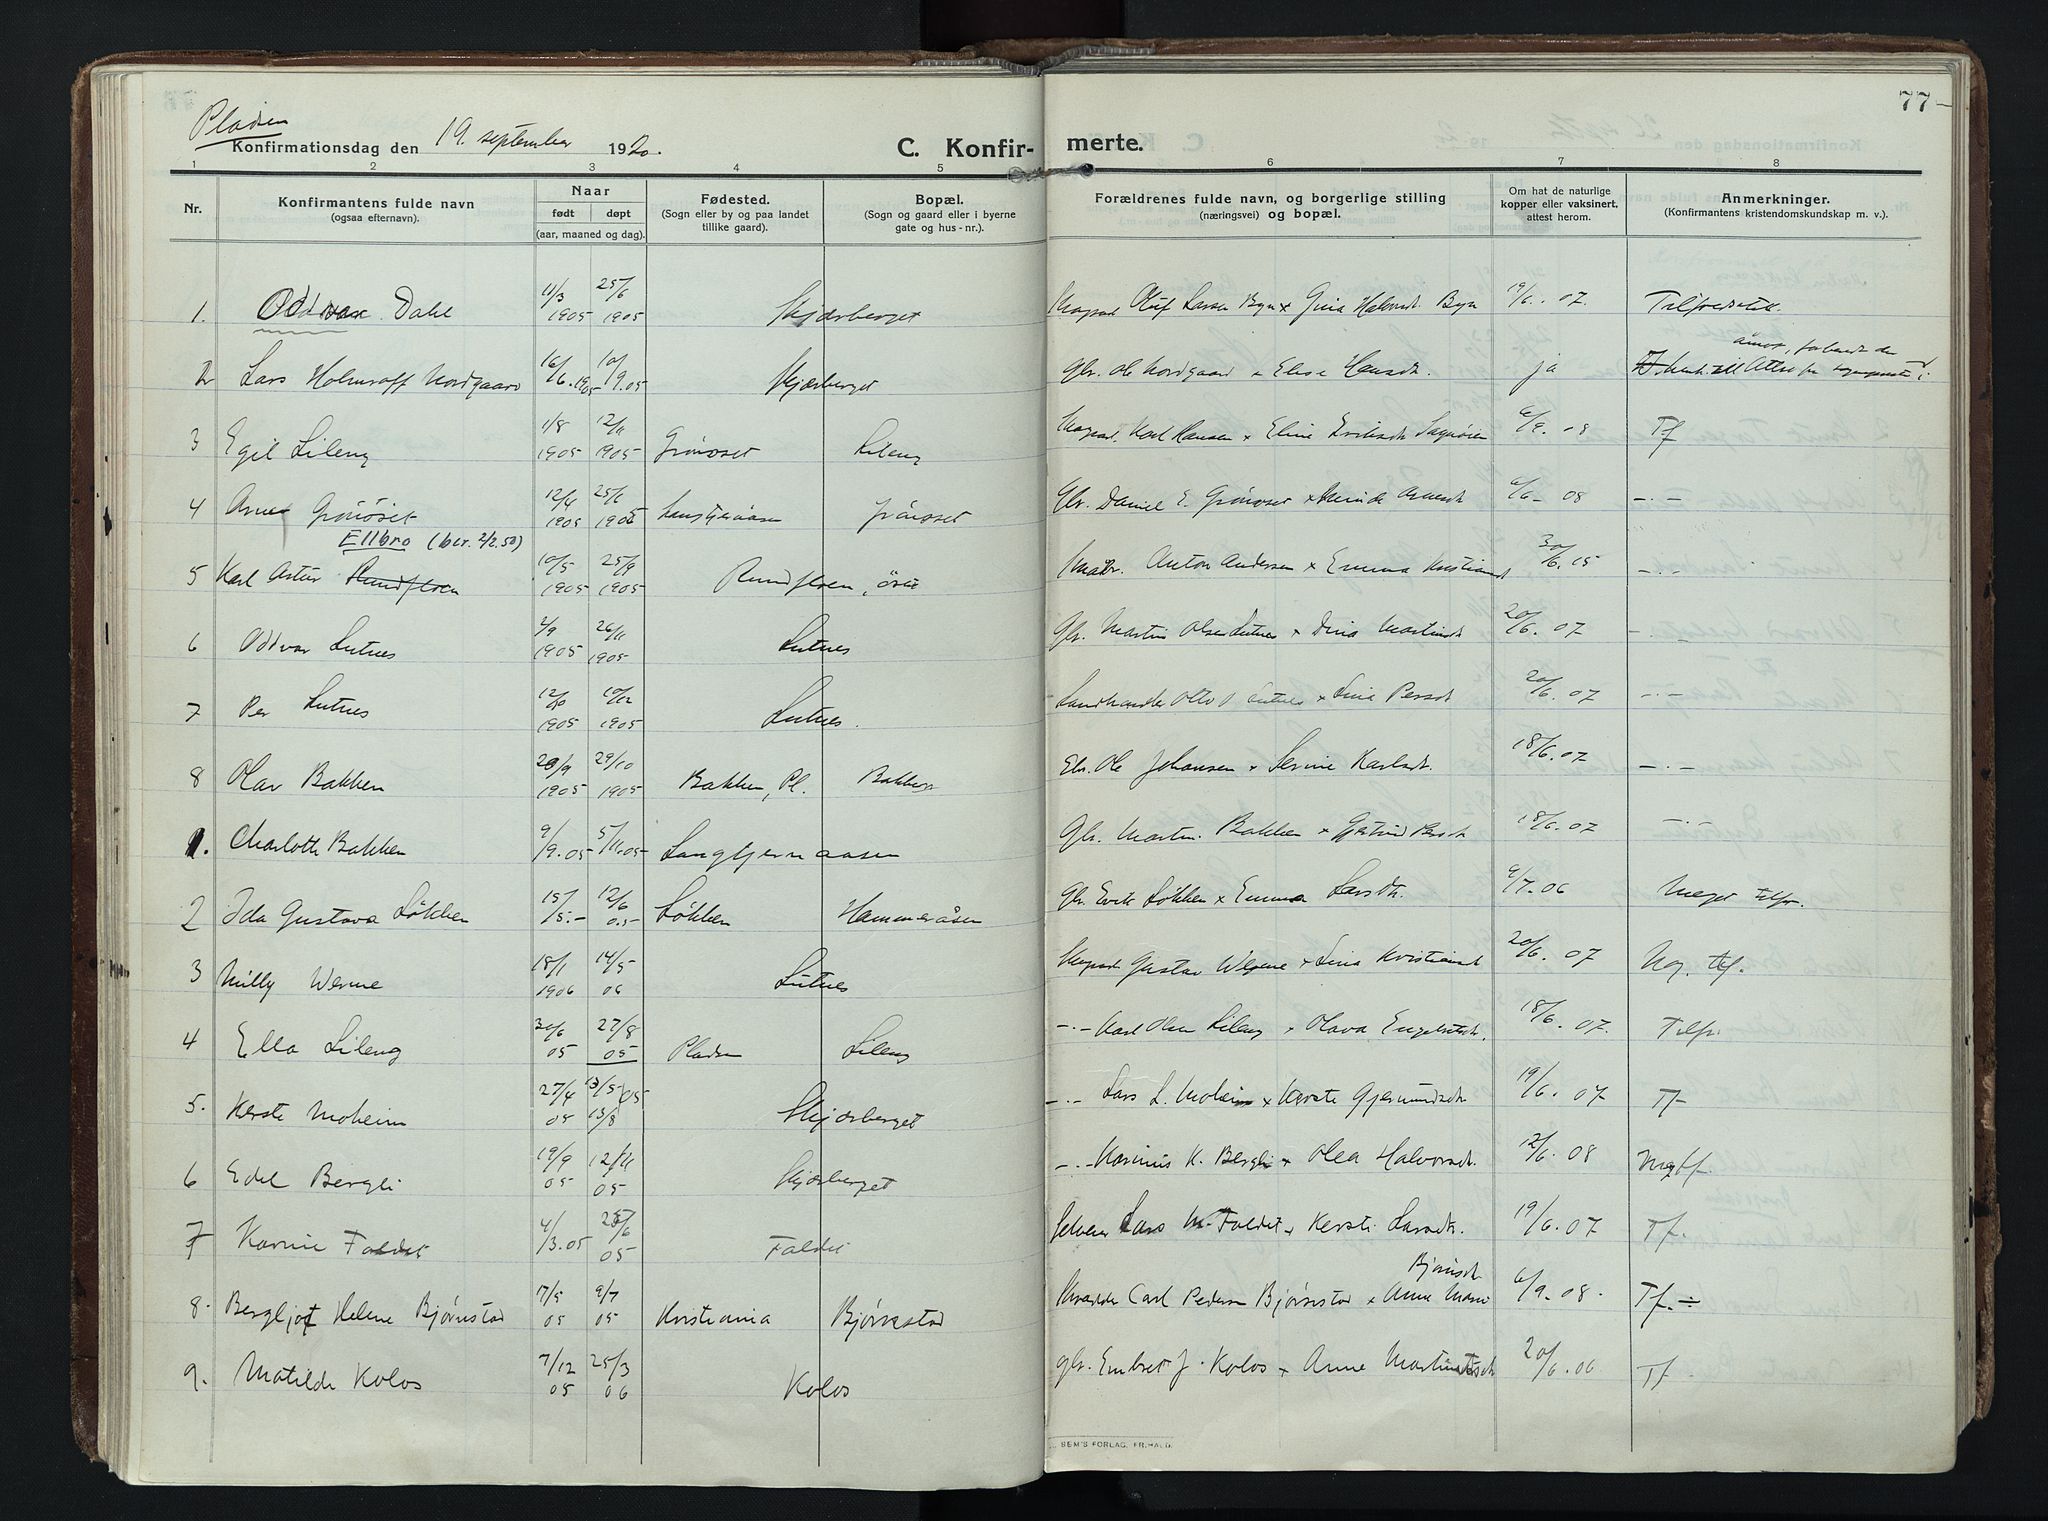 Pladsen
77
Konfirmationsdag den 19. september 1920.
C. Konfirmerte.
1 2 3 4 5 6 7 8
Nr. Konfirmantens fulde navn (ogsaa efternavn). Naar født døpt (aar, maaned og dag). Fødested. (Sogn eller by og paa landet tillike gaard). Bopæl. (Sogn og gaard eller i byerne gate og hus-nr.). Forældrenes fulde navn, og borgerlige stilling (næringsvei) og bopæl. Om hat de naturlige kopper eller vaksinert, attest herom. Anmerkninger. (Konfirmantens kristendomskundskap m. v.).
1. Oddvar Dahl 11/3 1905 25/6 1905 Skjærberget Oluf Larsen Byn x Gina Halvosdt. Byn 19/6. 07.
2 Lars Holmroff Nordgaard 16/6. 1905 10/9.05 Skjærberget Gbr. Ole Nordgaard x Elise Hansdt. ja
3 Egil Lileng 1/8 1905 12/11 1905 Grönoset Lileng Karl Hansen x Eline Eriksdt. 6/9. 08 Tf
4 Arne Grönöset 12/4 1905 25/1 1905 Grönoset Gbr. Daniel E. Grönoset x 6/6 - 08 -.-
Ellbro (bcr. 2/2.50)
5 Karl Artur Rundfloen 10/5 1905 25/9 1905 Rundfloen, Anton Andersen x Emma Kristiansdt 30/6. 15 -.-
6 Oddvar Lutnes 2/9 1905 26/11 1905 Lutnes Gbr. Martin Olsen Lutnes x Dina Martinsdt 20/6. 07 -.-
7 Per Lutnes 1905 10/12 1905 Lutnes. Landhandler Otto O Lutnes x Lina Persdt 20/6. 07 -.-
8 Olav Bakken 20/9 1905 29/10 1905 Bakken, Pl. Bakken Ole Johansen x Serine Karlsdt. 18/6. 07 -.-
1. Charlotte Bakken 9/9.05 5/11.05 Langtjernaasen Gbr. Martin Bakken x 18/6. 07 -.-
2 Ida Gustava Løkken 15/5.- 12/6 05 Løkken Hammeråsen Gbr. Erik Løkken x Emma Larsdt. 9/7-06 Meget tilfr.
3 Milly Werme 18/1 1906 14/5 06 Lutnes Gustav Werme x Lina Kristiansdt 20/6. 07 Mg. tf.
4 Ella Lileng 30/6 05 27/8 05 Pladsen Lileng -.- Karl Olsen Lileng x Olava Engebretsdt. 18/6. 07. Tilfr.
5. Kerste Moheim 27/4 05 13/5 05 13/8 Skjærberget -.- Lars L. Moheim x Kerste Gjermundsdt 19/6. 07 Tf
6 Edel Bergli 19/9 05 12/11 05 Skjærberget -.- Marinus K. Bergli x Olea Halvorsdt. 12/6. 08 Mgtf.
7 Karine Faldet 4/3.05 25/6 05 Faldet Lars M. Faldet x Kersti Larsdt. 19/6. 07 Tf.
Bjönsdt
8. Bergljot Helene Bjørnstad 17/5 05 9/7 05 Kristiania Bjørnstad Carl Pedersen Bjørnstad x Anne Marie 6/9. 08. Tf.
9. Matilde Kolos 7/12 05 25/3 06 Kolos gbr. Embret J. Kolos x Anne Martinsdt 20/6. 06 Tf
SEM'S FORLAG, FR.HALD.